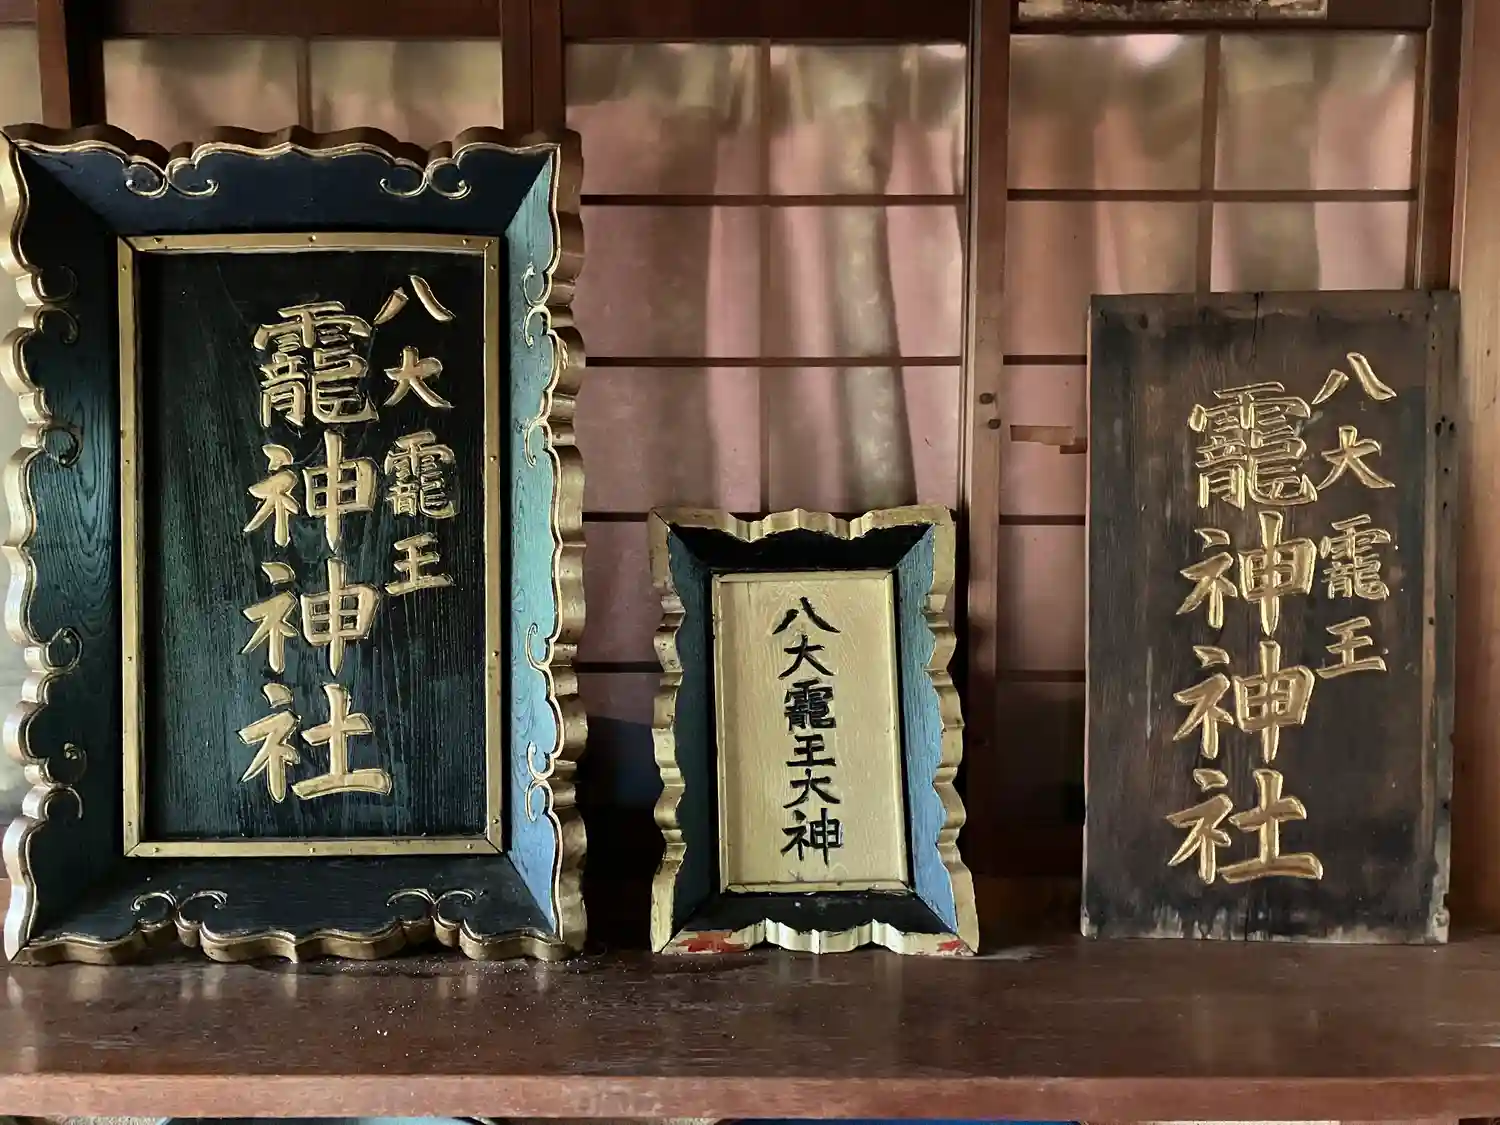 八大龗王
龗神神社
八大龗王大神
八大龗王
龗神神社